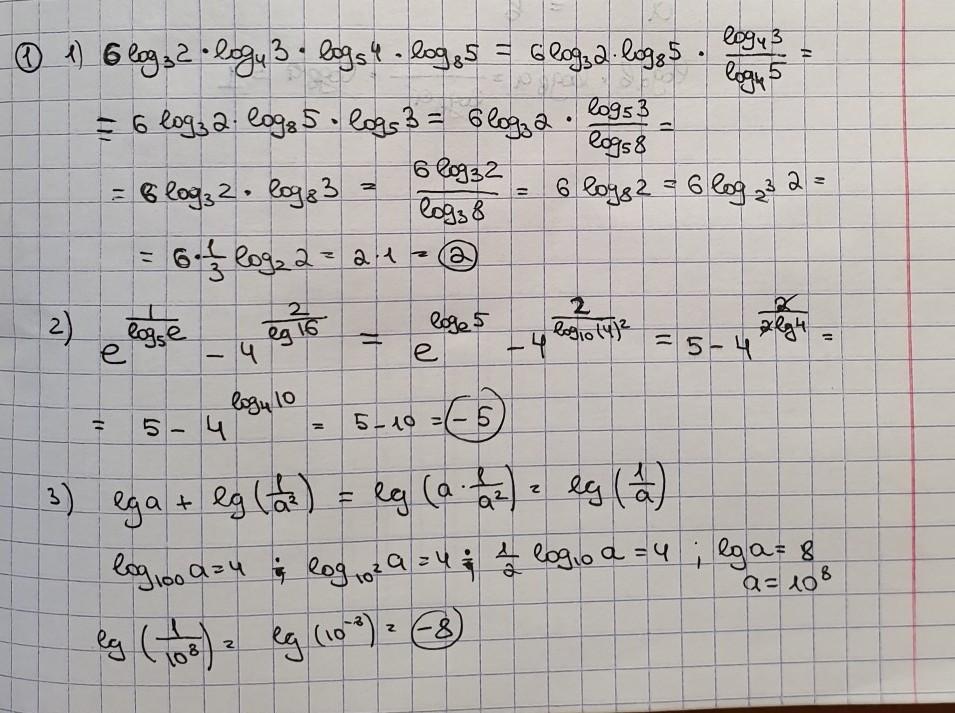 ① 1) 6 log₃2 · log₄3 · log₅4 · log₈5 = 6 log₃2 · log₈5 · log₄3/log₄5 =
= 6 log₃2 · log₈5 · log₅3 = 6 log₃2 · log₅3/log₅8 =
= 6 log₃2 · log₈3 = 6 log₃2/log₃8 = 6 log₈2 = 6 log_{2³} 2 =
= 6 · 1/3 log₂2 = 2 · 1 = 2
2) e^{1/log₅e} - 4^{2/lg 16} = e^{logₑ5} - 4^{2/log₁₀(4)²} = 5 - 4^{2/2lg4} =
= 5 - 4^{log₄10} = 5 - 10 = -5
3) lg a + lg (1/a²) = lg (a · 1/a²) = lg (1/a)
log₁₀₀ a = 4 ; log_{10²} a = 4 ; 1/2 log₁₀ a = 4 ; lg a = 8
a = 10⁸
lg (1/10⁸) = lg (10⁻⁸) = -8